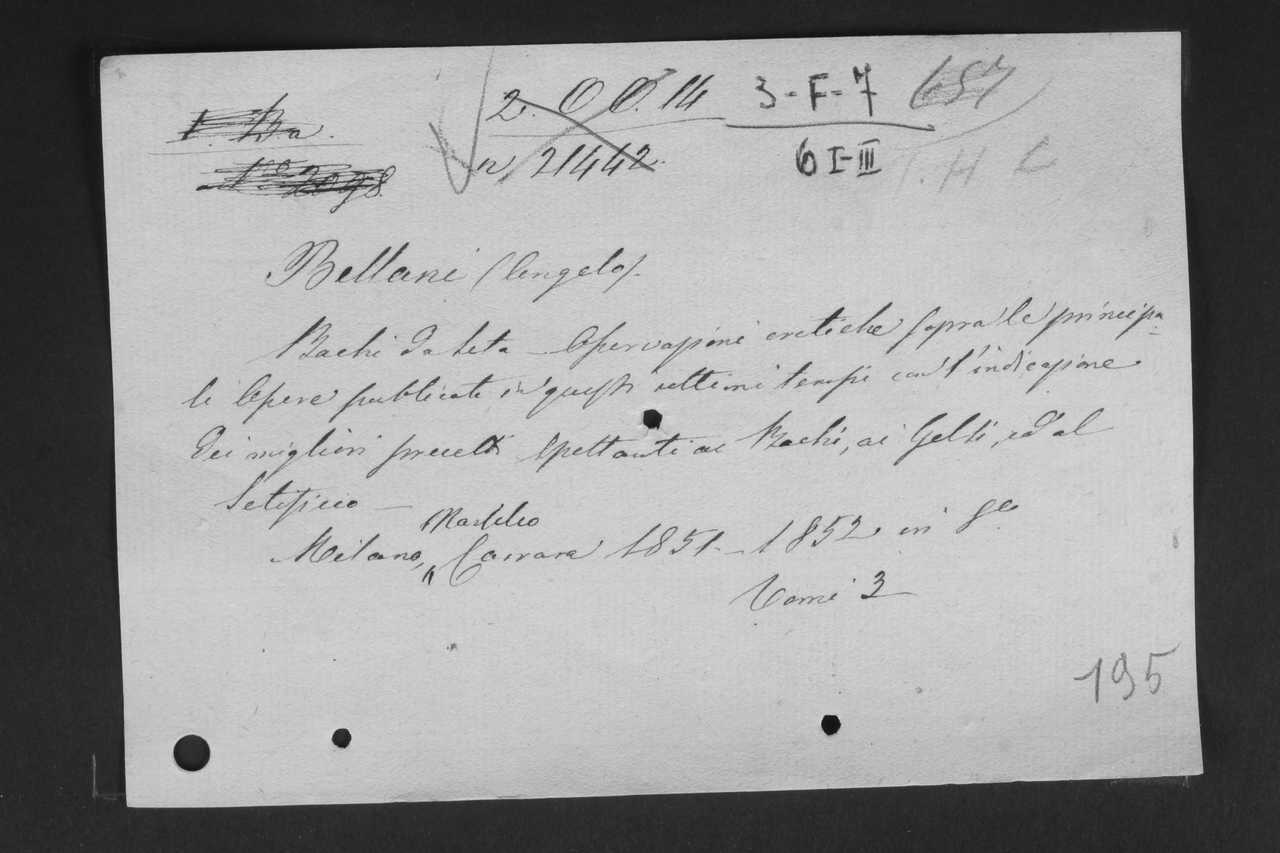 2. O O. 14 3-F-7
n 21442. 6 I-III
T. H
Bellani (Angelo).
Bachi da Seta - Osservazioni critiche sopra le principa
li Opere publicate in questi ultimi tempi con l'indicazione
dei migliori precetti spettanti ai Bachi, ai Gelsi, ed al
Setificio —
Milano, Carrara 1851 - 1852 in 8o
Tomi 3
195